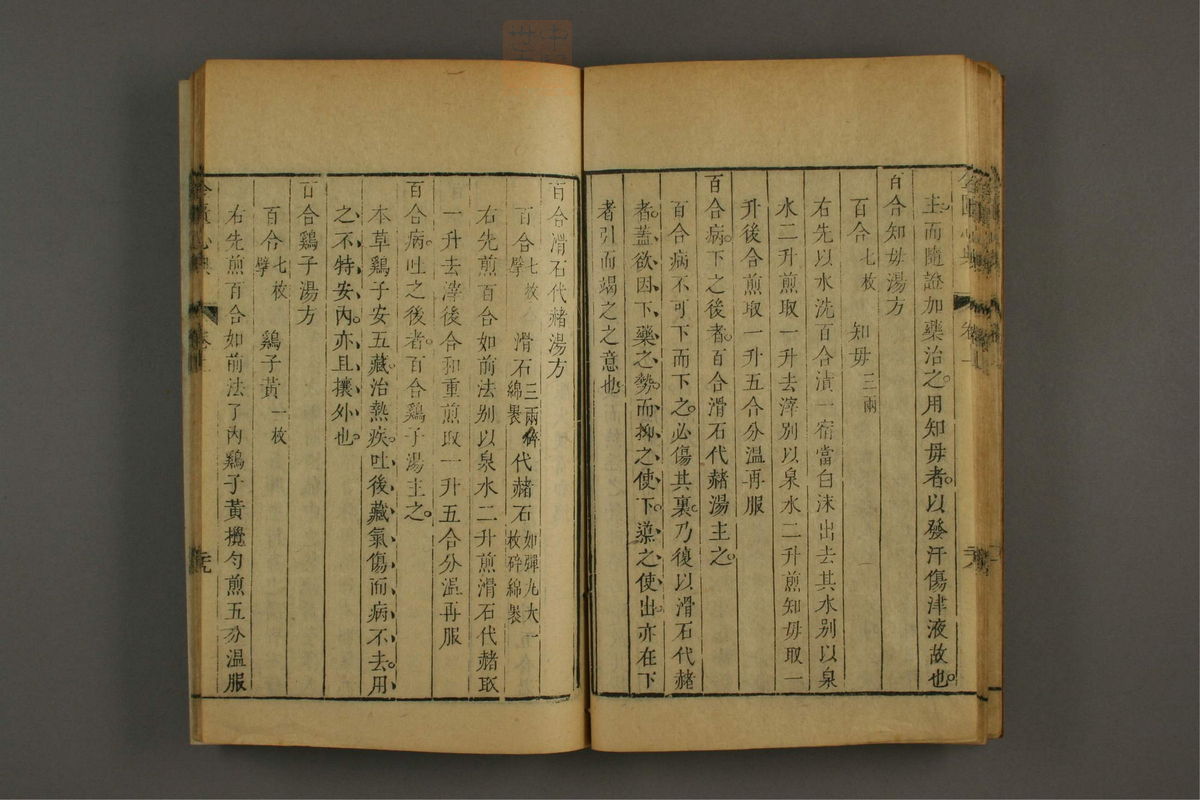 主而隨證加藥治之。用知毋者。以發汗傷津液故也。
百合知毋湯方
百合七枚 知毋三兩
右先以水洗百合漬一宿當白沫出去其水别以泉
水二升煎取一升去滓别以泉水二升煎知毋取一
升後合煎取一升五合分温再服
百合病。下之後者。百合滑石代赭湯主之。
百合病不可下而下之。必傷其裏。乃復以滑石代赭
者。蓋欲因下藥之勢。而抑之使下。導之使出。亦在下
者引而竭之之意也。
百合滑石代赭湯方
百合七枚擘 滑石三兩碎綿裹 代赭石如彈丸大一枚碎綿裹
右先煎百合如前法别以泉水二升煎滑石代赭取
一升去滓後合和重煎取一升五合分温再服
百合病。吐之後者。百合鷄子湯主之。
本草鷄子安五藏。治熱疾。吐後藏氣傷而病不去。用
之不特安内。亦且攘外也。
百合鷄子湯方
百合七枚擘 鷄子黃一枚
右先煎百合如前法了内鷄子黃攪勻煎五分温服